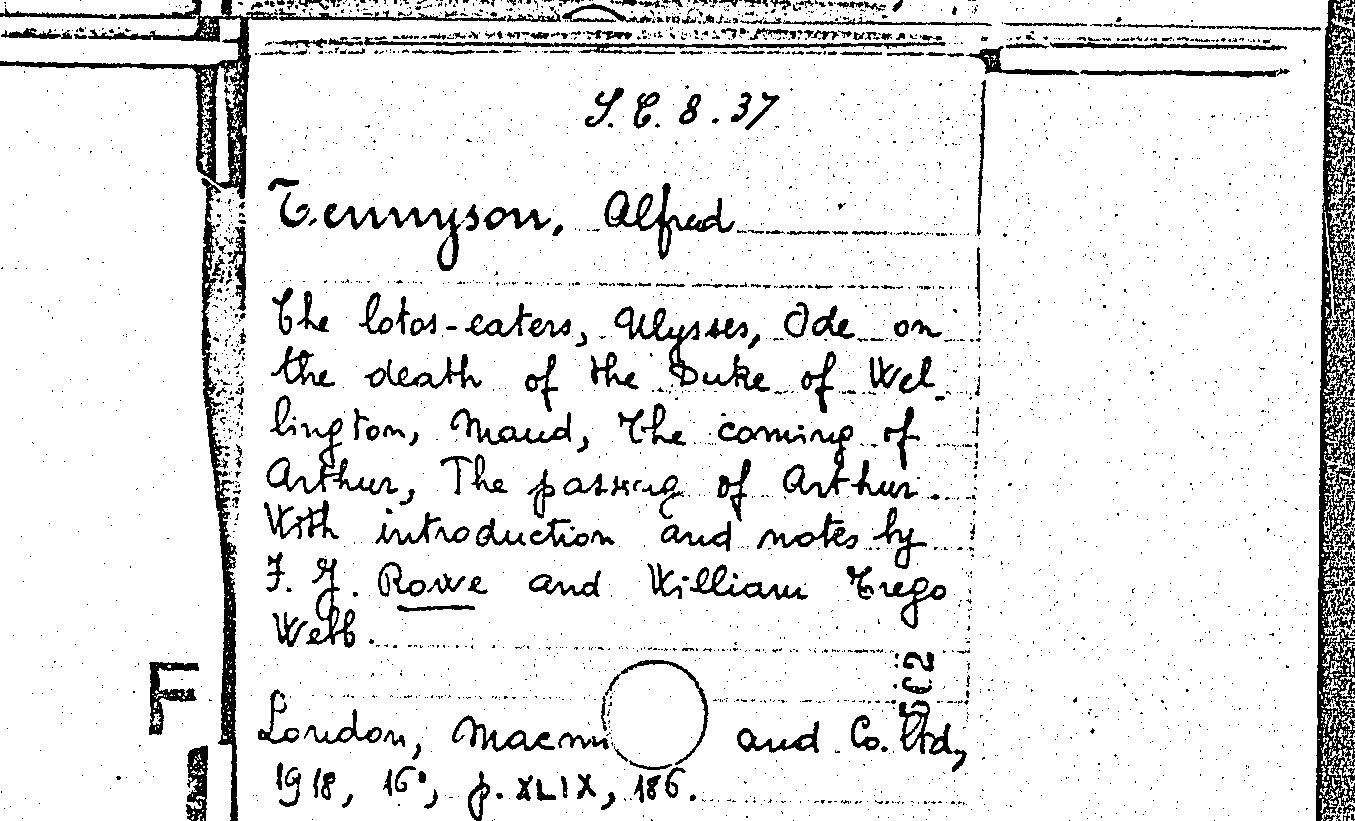 S.C. 8.37
Tennyson, Alfred
The lotos-eaters, Ulysses, Ode on
the death of the Duke of Wel-
lington, Maud, The coming of
Arthur, The passing of Arthur.
With introduction and notes by
F. J. Rowe and William Trego
Webb.
F
London, Macmi and Co. Ltd,
1918, 16°, p. XLIX, 186.